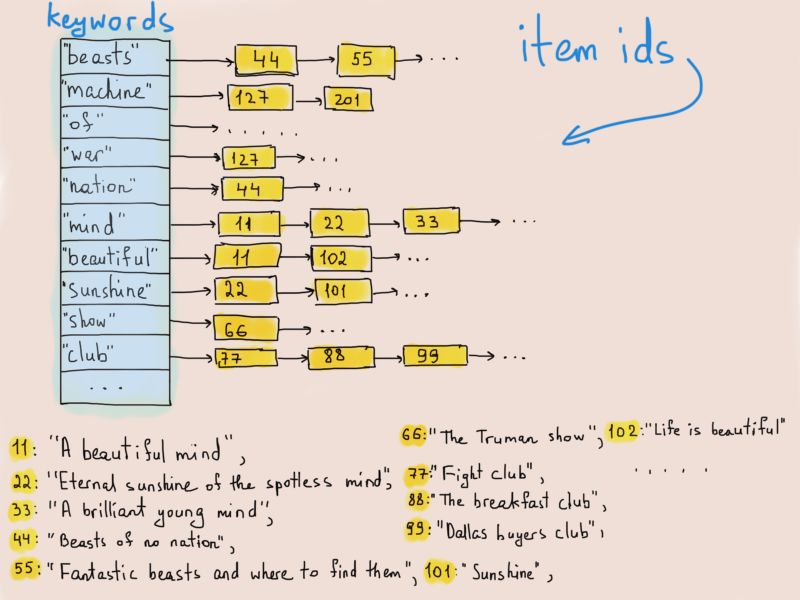 keywords
item ids
"beasts" 44 55 ...
"machine" 127 201
"of" ......
"war" 127 ...
"nation" 44 ...
"mind" 11 22 33 ...
"beautiful" 11 102 ...
"sunshine" 22 101 ...
"show" 66 ...
"club" 77 88 99 ...
...
11: "A beautiful mind",
22: "Eternal sunshine of the spotless mind",
33: "A brilliant young mind",
44: "Beasts of no nation",
55: "Fantastic beasts and where to find them", 101: "Sunshine",
66: "The Truman show", 102: "Life is beautiful"
77: "Fight club", .....
88: "The breakfast club",
99: "Dallas buyers club",